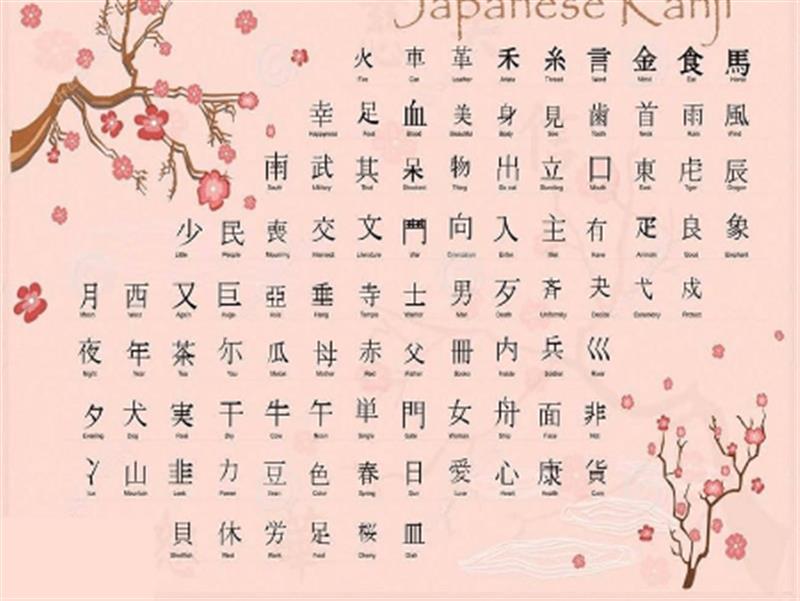 Japanese Kanji
火 車 革 禾 糸 言 金 食 馬
Fire Car Leather Thread Word Eat Horse
幸 足 血 美 身 見 歯 首 雨 風
Happyness Foot Blood Beautiful Body See Tooth Neck Rain Wind
南 武 其 呆 物 出 立 口 東 虍 辰
South Military That Shocked Thing Go out Standing Mouth East Tiger Dragon
少 民 喪 交 文 鬥 向 入 主 有 疋 良 象
Little People Mourning Intersect Literature War Orientation Enter Have Animals Good Elephant
月 西 又 巨 亞 垂 寺 士 男 歹 斉 夬 弋 戍
Moon West Again Huge Asia Hang Temple Warrior Man Death Uniformity Decide Ceremony Protect
夜 年 茶 尓 瓜 母 赤 父 冊 内 兵 巛
Night Year Tea You Melon Mother Red Father Books Inside Soldier River
夕 犬 実 干 牛 午 単 門 女 舟 面 非
Evening Dog Real Dry Cow Noon Single Gate Woman Ship Face Not
冫 山 韭 力 豆 色 春 日 愛 心 康 貨
Ice Mountain Leek Power Bean Color Spring Sun Love Heart Health Coin
貝 休 労 足 桜 皿
Shellfish Rest Work Foot Cherry Dish